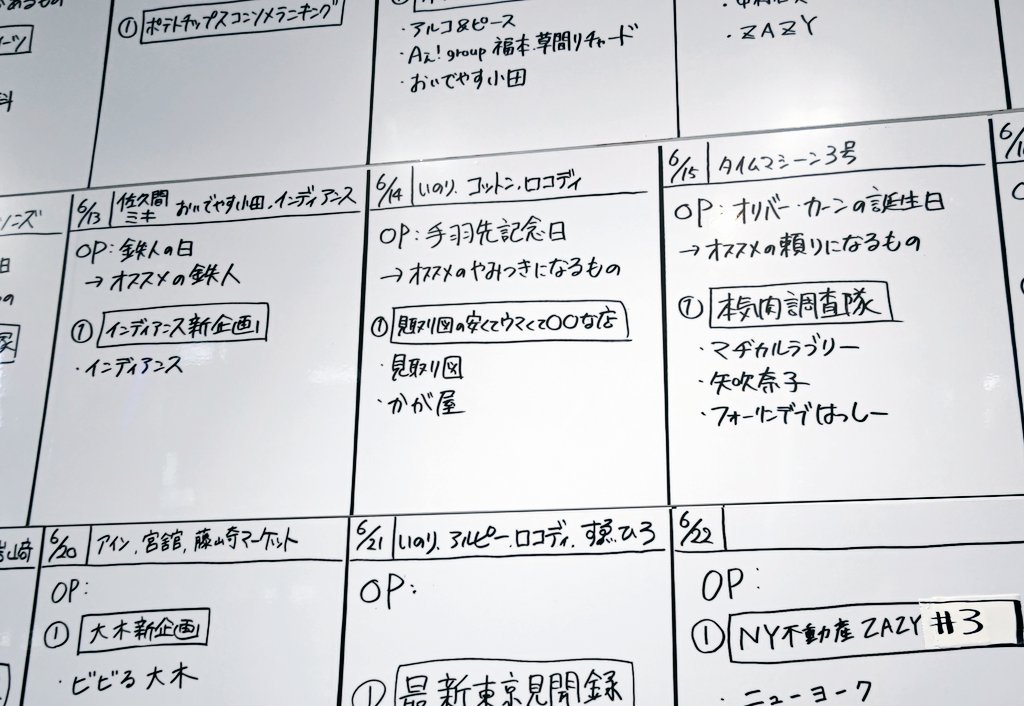 ① ポテトチップスコンソメランキング
・アルコ&ピース
・Aぇ! group 福本.草間リチャード
・おいでやす小田
・ZAZY
6/13 佐久間ミキ おいでやす小田.インディアンス
OP: 鉄人の日
→ オススメの鉄人
① インディアンス新企画
・インディアンス
6/14 いのり. コットン.ロコディ
OP: 手羽先記念日
→ オススメのやみつきになるもの
① 見取り図の安くてウマくて〇〇な店
・見取り図
・かが屋
6/15 タイムマシーン3号
OP: オリバー・カーンの誕生日
→ オススメの頼りになるもの
① 本気肉調査隊
・マヂカルラブリー
・矢吹奈子
・フォーリンデブはっしー
6/20 アイン.宮舘.藤崎マーケット
OP:
① 大木新企画
・ビビる大木
6/21 いのり.アルピー.ロコディ.すゑひろ
OP:
① 最新東京見聞録
6/22
OP:
① NY不動産ZAZY #3
・ニューヨーク